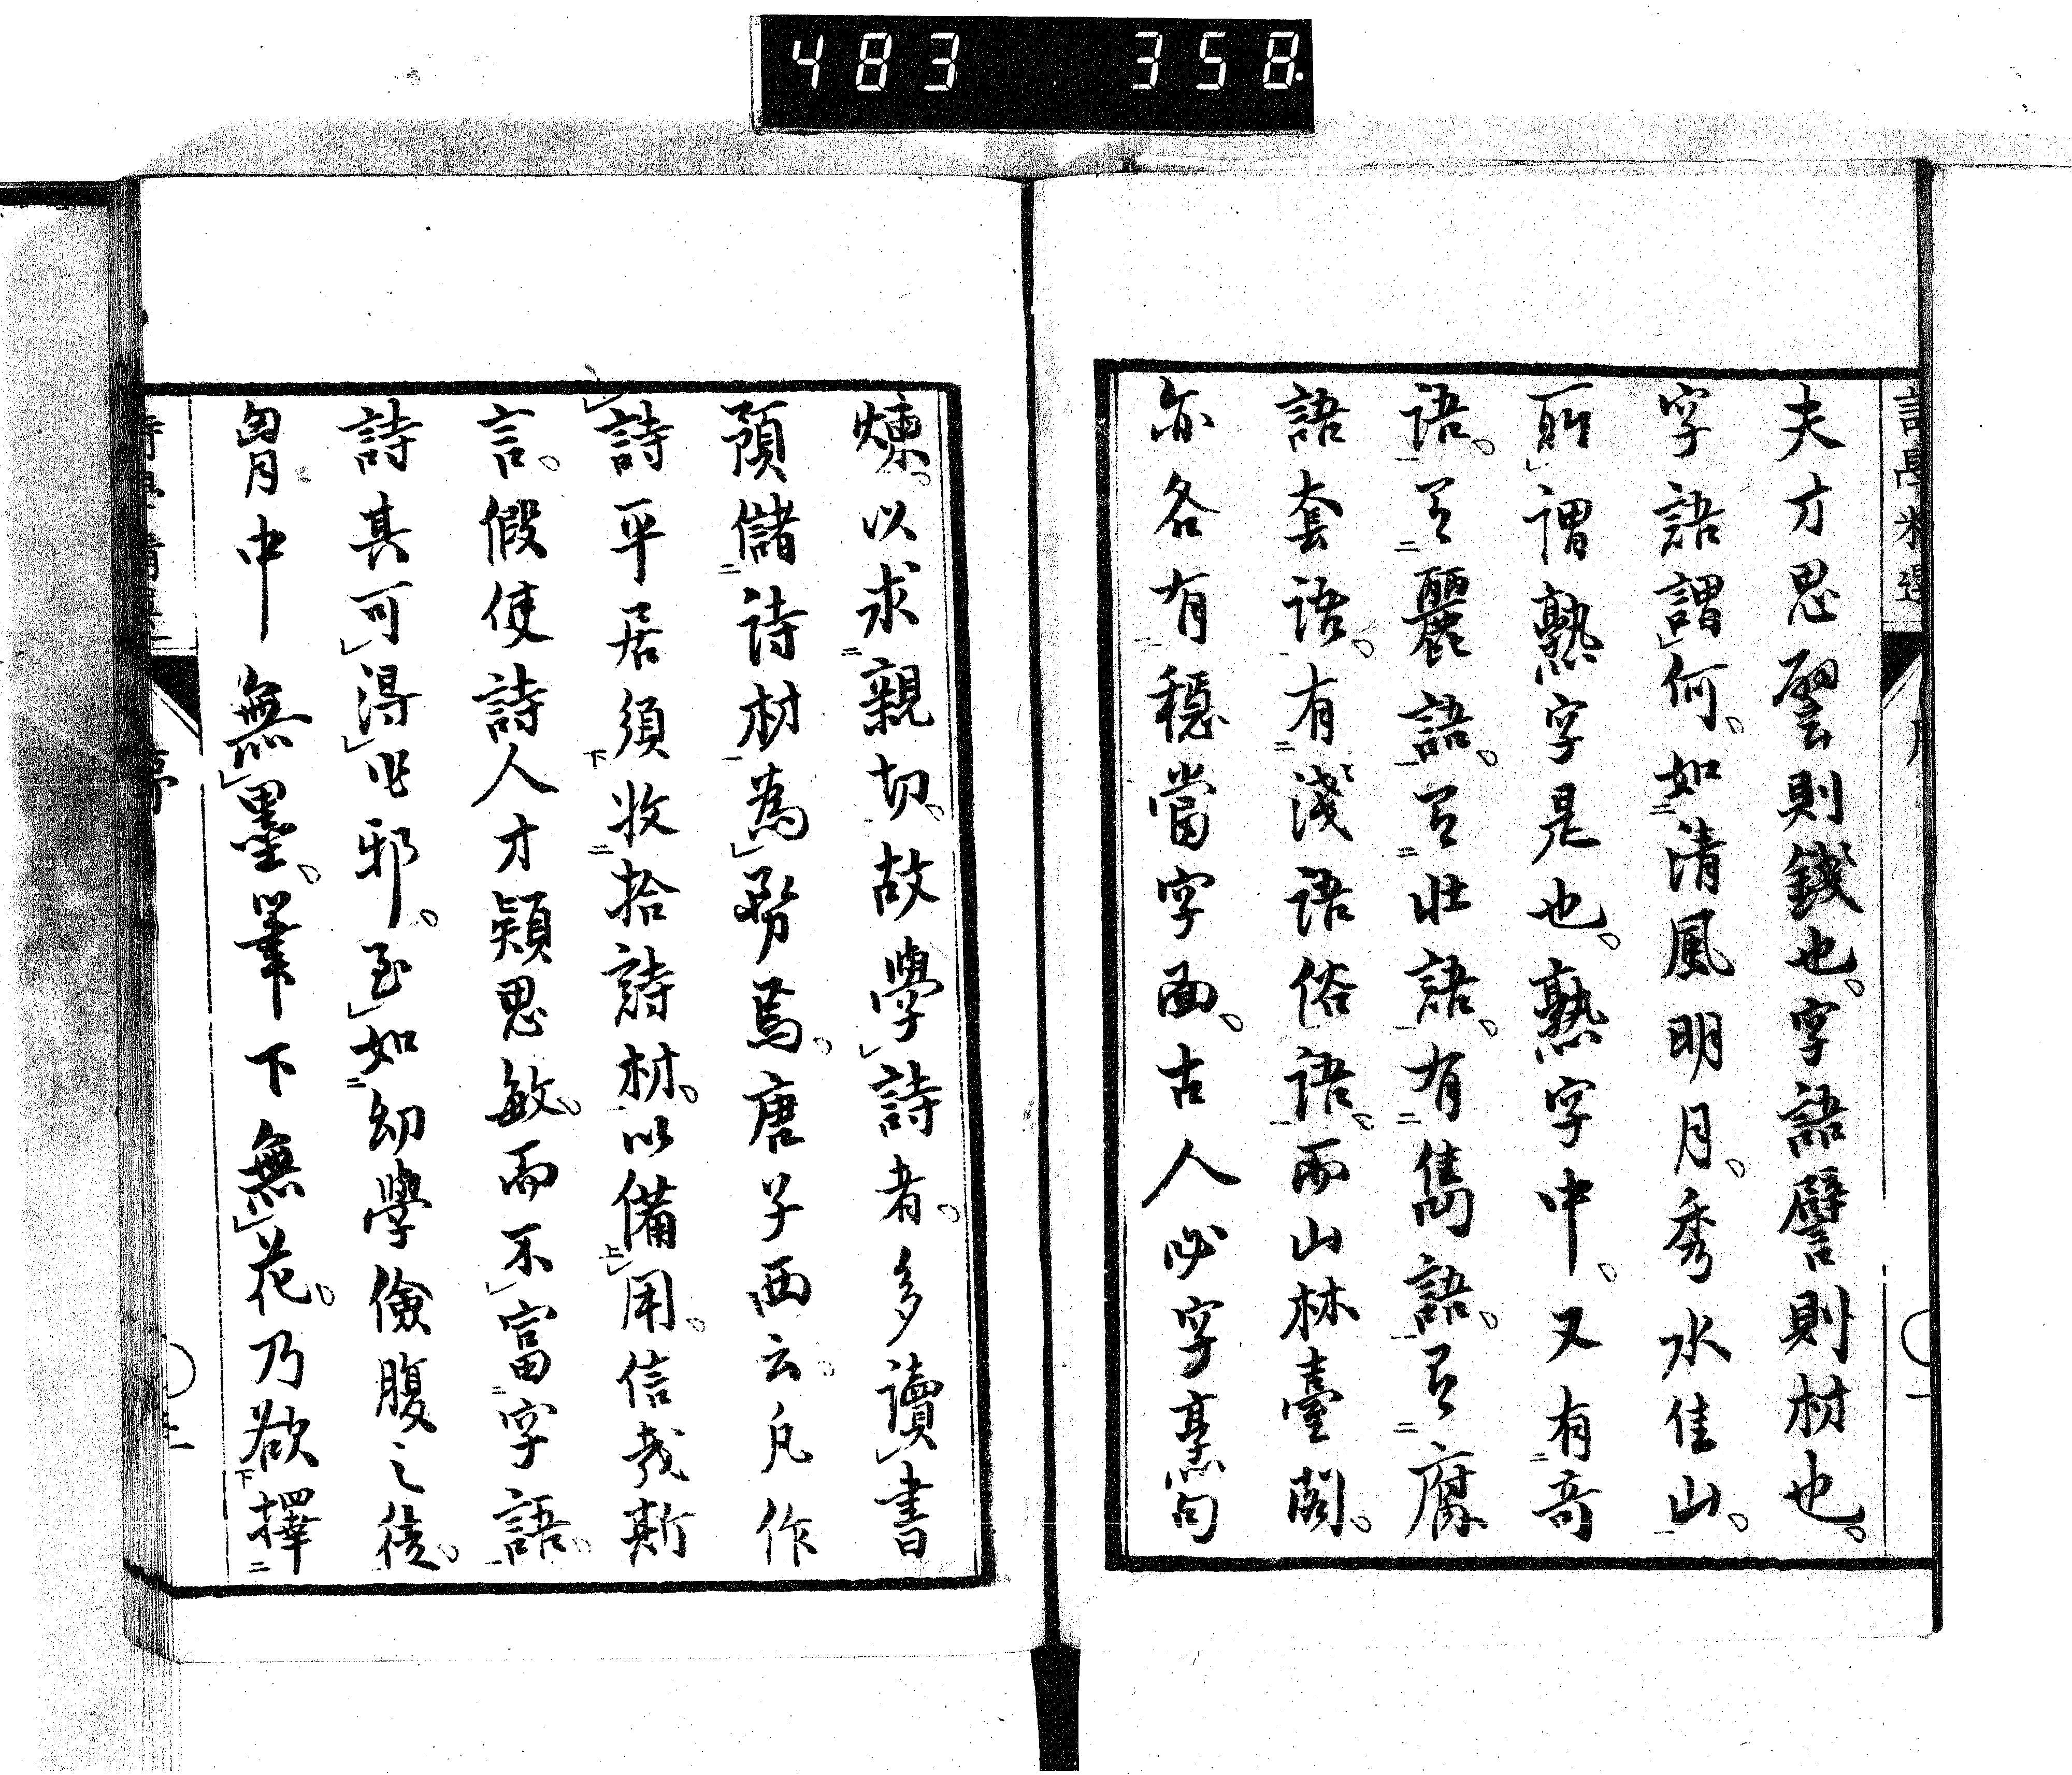 483 358
夫才思譬則錢也。字語譬則材也。
字語謂何。如清風明月。秀水佳山。
所謂熟字是也。熟字中。又有奇
語。有麗語。有壯語。有雋語。有腐
語套語。有淺語俗語。而山林臺閣。
亦各有穩當字面。古人必字烹句
煉。以求親切。故學詩者。多讀書
預儲詩材為務焉。唐子西云。凡作
詩平居須收拾詩材。以備用。信哉斯
言。假使詩人才穎思敏。而不富字語。
詩其可得作邪。至如幼學儉腹之徒。
胷中無墨。筆下無花。乃欲擇